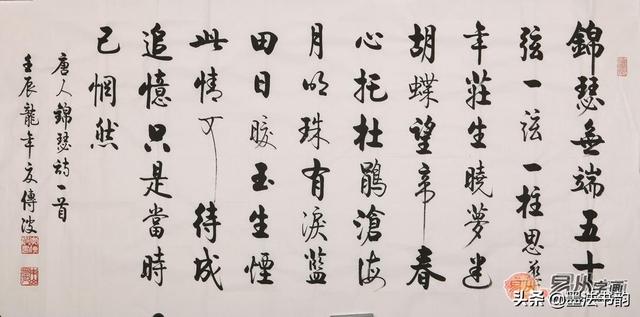 錦瑟無端五十
弦一弦一柱思華
年莊生曉夢迷
胡蝶望帝春
心托杜鵑滄海
月明珠有淚藍
田日暖玉生煙
此情可待成
追憶只是當時
已惘然
唐人錦瑟詩一首
壬辰龍年夏傳波
易从字画
头条@墨法书韵